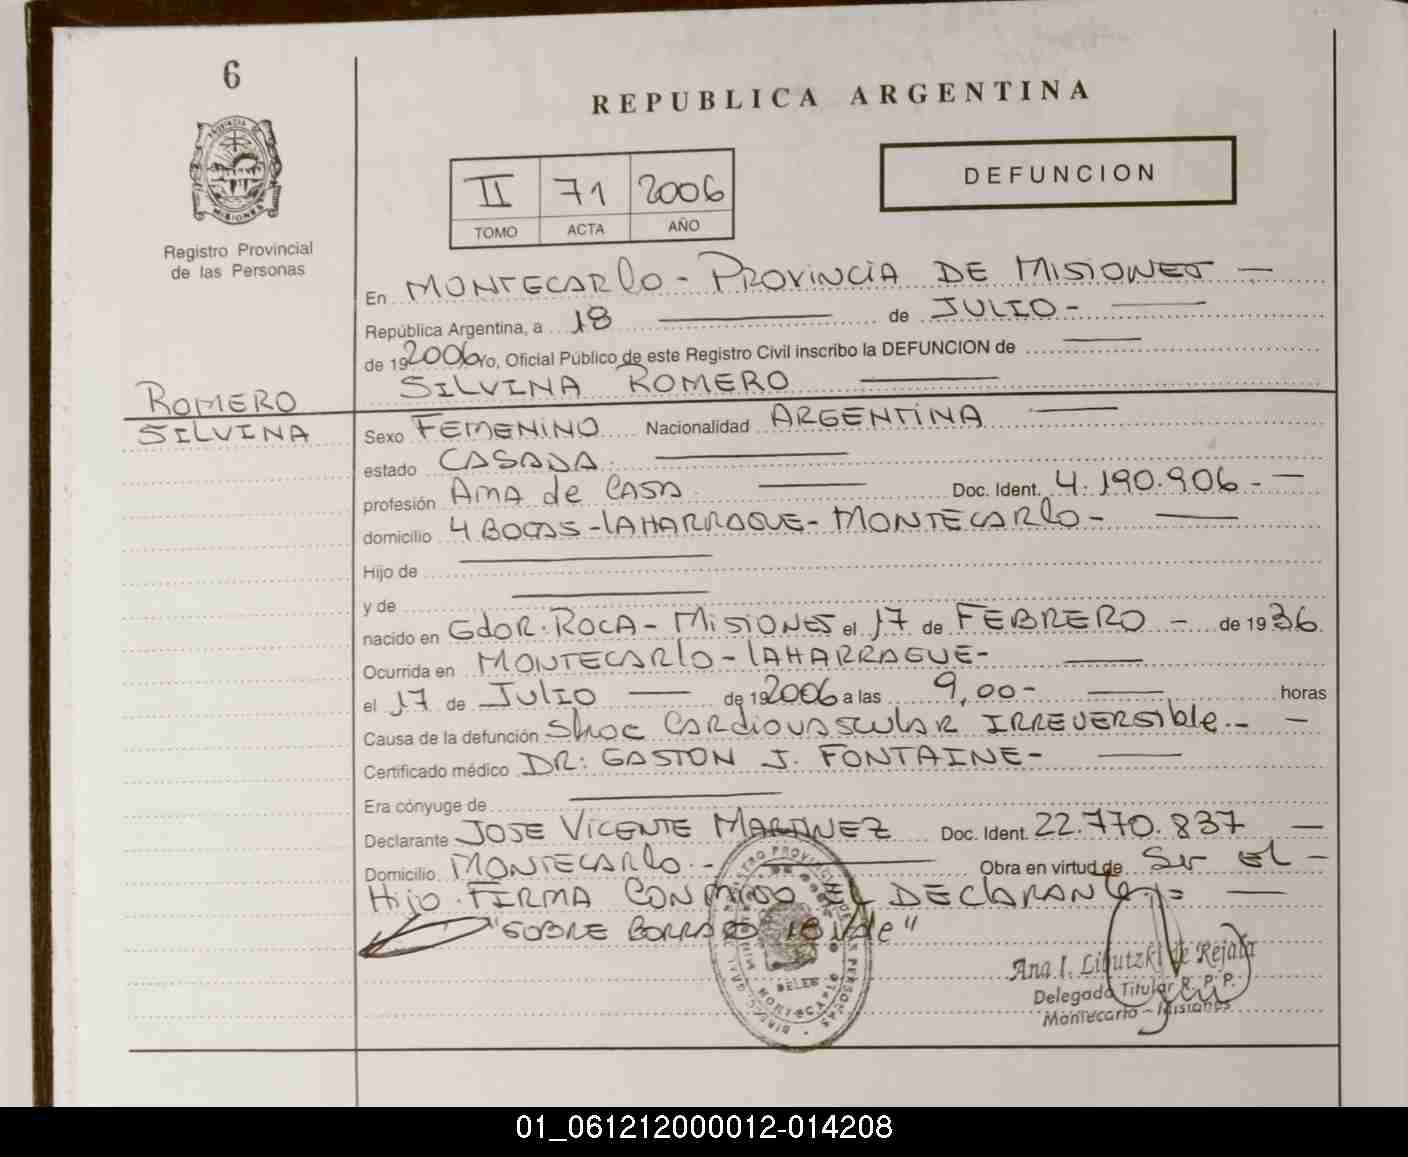 6
REPUBLICA ARGENTINA
PROVINCIA DE
MISIONES
II 71 2006
TOMO ACTA AÑO
DEFUNCION
Registro Provincial
de las Personas
En MONTECARLO - PROVINCIA DE MISIONES -
República Argentina, a 18 de JULIO -
de 19 2006 yo, Oficial Público de este Registro Civil inscribo la DEFUNCION de
SILVINA ROMERO
ROMERO
SILVINA
Sexo FEMENINO Nacionalidad ARGENTINA
estado CASADA.
profesión AMA de CASA. Doc. Ident. 4.190.906.-
domicilio 4 BOCAS - LAHARRAGUE - MONTECARLO -
Hijo de
y de
nacido en GdOR. ROCA - MISIONES el 17 de FEBRERO - de 1936
Ocurrida en MONTECARLO - LAHARRAGUE -
el 17 de JULIO de 19 2006 a las 9,00 - horas
Causa de la defunción Shoc CARDIOVASCULAR IRREVERSIBLE. -
Certificado médico DR: GASTON J. FONTAINE -
Era cónyuge de
Declarante JOSE VICENTE MARTINEZ Doc. Ident. 22.770.837 -
Domicilio. MONTECARLO. - Obra en virtud de Ser EL -
Hijo. FIRMA CONMIGO EL DECLARANTE
"SOBRE BORRADO 18 Vale"
Ana I. de Rejala
Delegado Titular R. P. P.
Montecarlo - Misiones
01_061212000012-014208